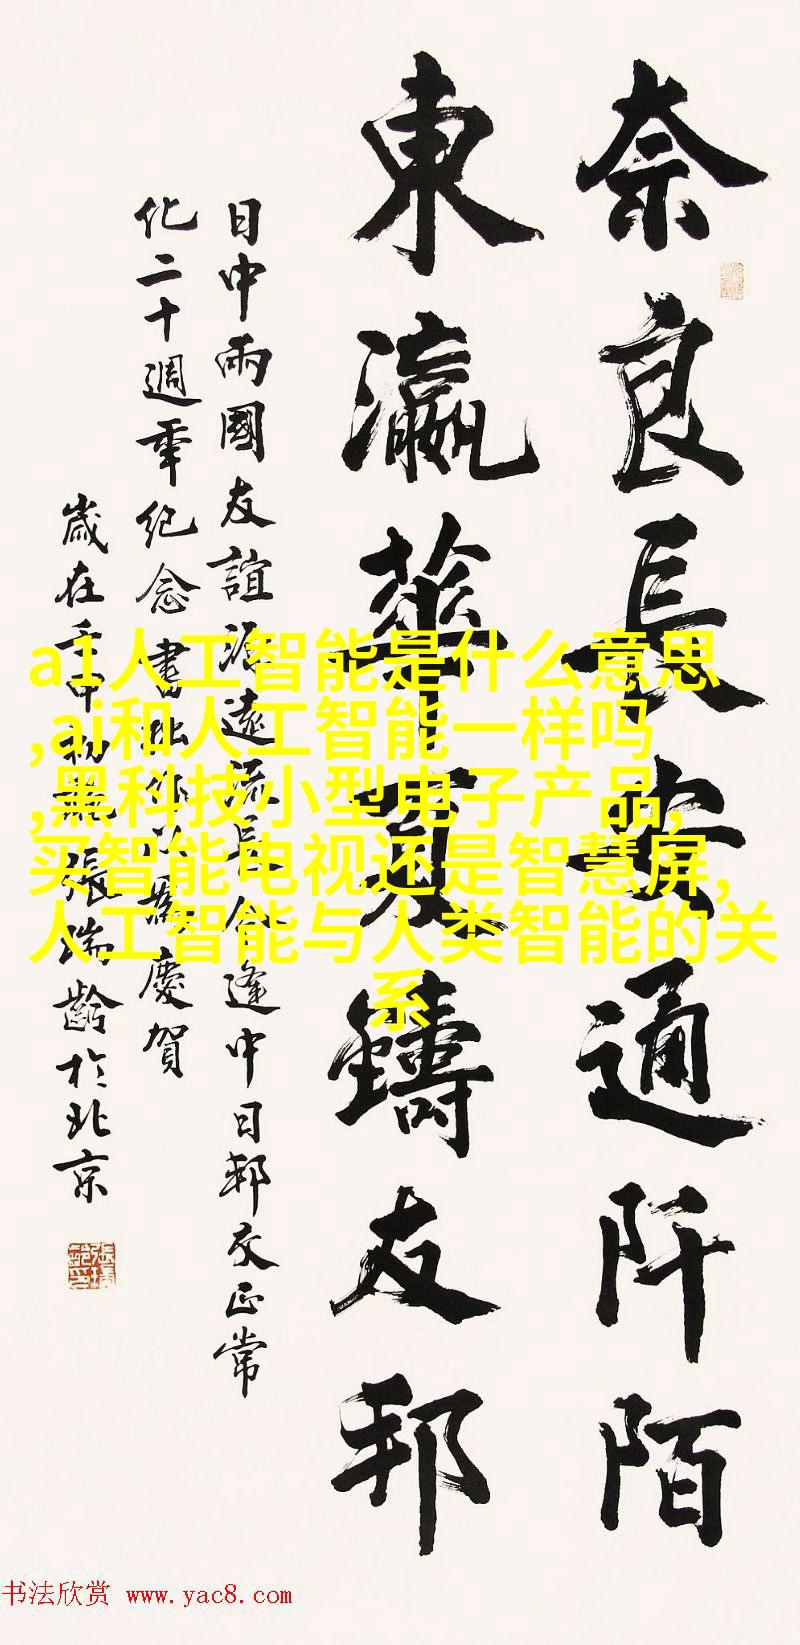 奈良長安通阡陌
東瀛華夏鑄友邦
日中兩國友誼源遠流長今逢中日邦交正常
化二十週年紀念書此作以爲慶賀
歲在壬申初夏張瑞齡於北京
a1人工智能是什么意思
,ai和人工智能一样吗
,黑科技小型电子产品,
买智能电视还是智慧屏,
人工智能与人类智能的关
系
书法欣赏 www.yac8.com